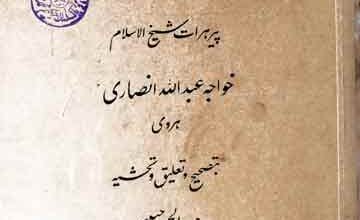 پیر هرات شیخ الاسلام
خواجه عبدالله انصاری
هروی
بتصحیح و تعلیق و تحشیه